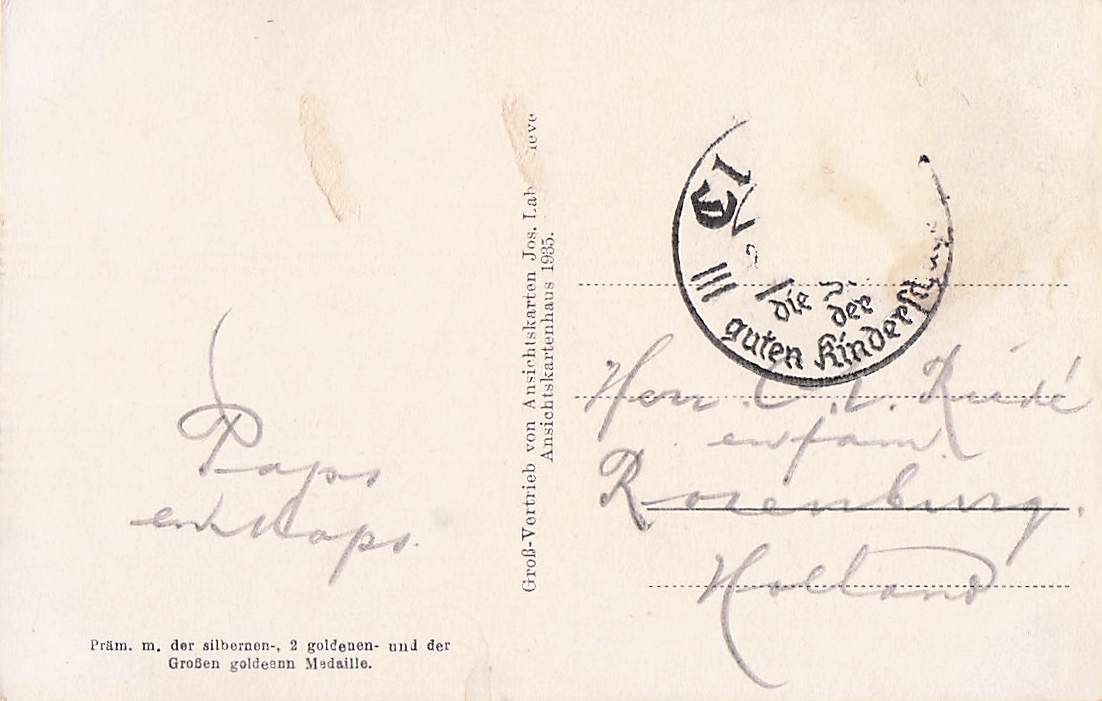 Paps
en Maps.
Präm. m. der silbernen-, 2 goldenen- und der
Großen goldeenn Medaille.
Groß-Vertrieb von Ansichtskarten Jos.
Ansichtskartenhaus 1935.
die der
guten
Herr C. L.
en fam.
Rosenburg.
Holland